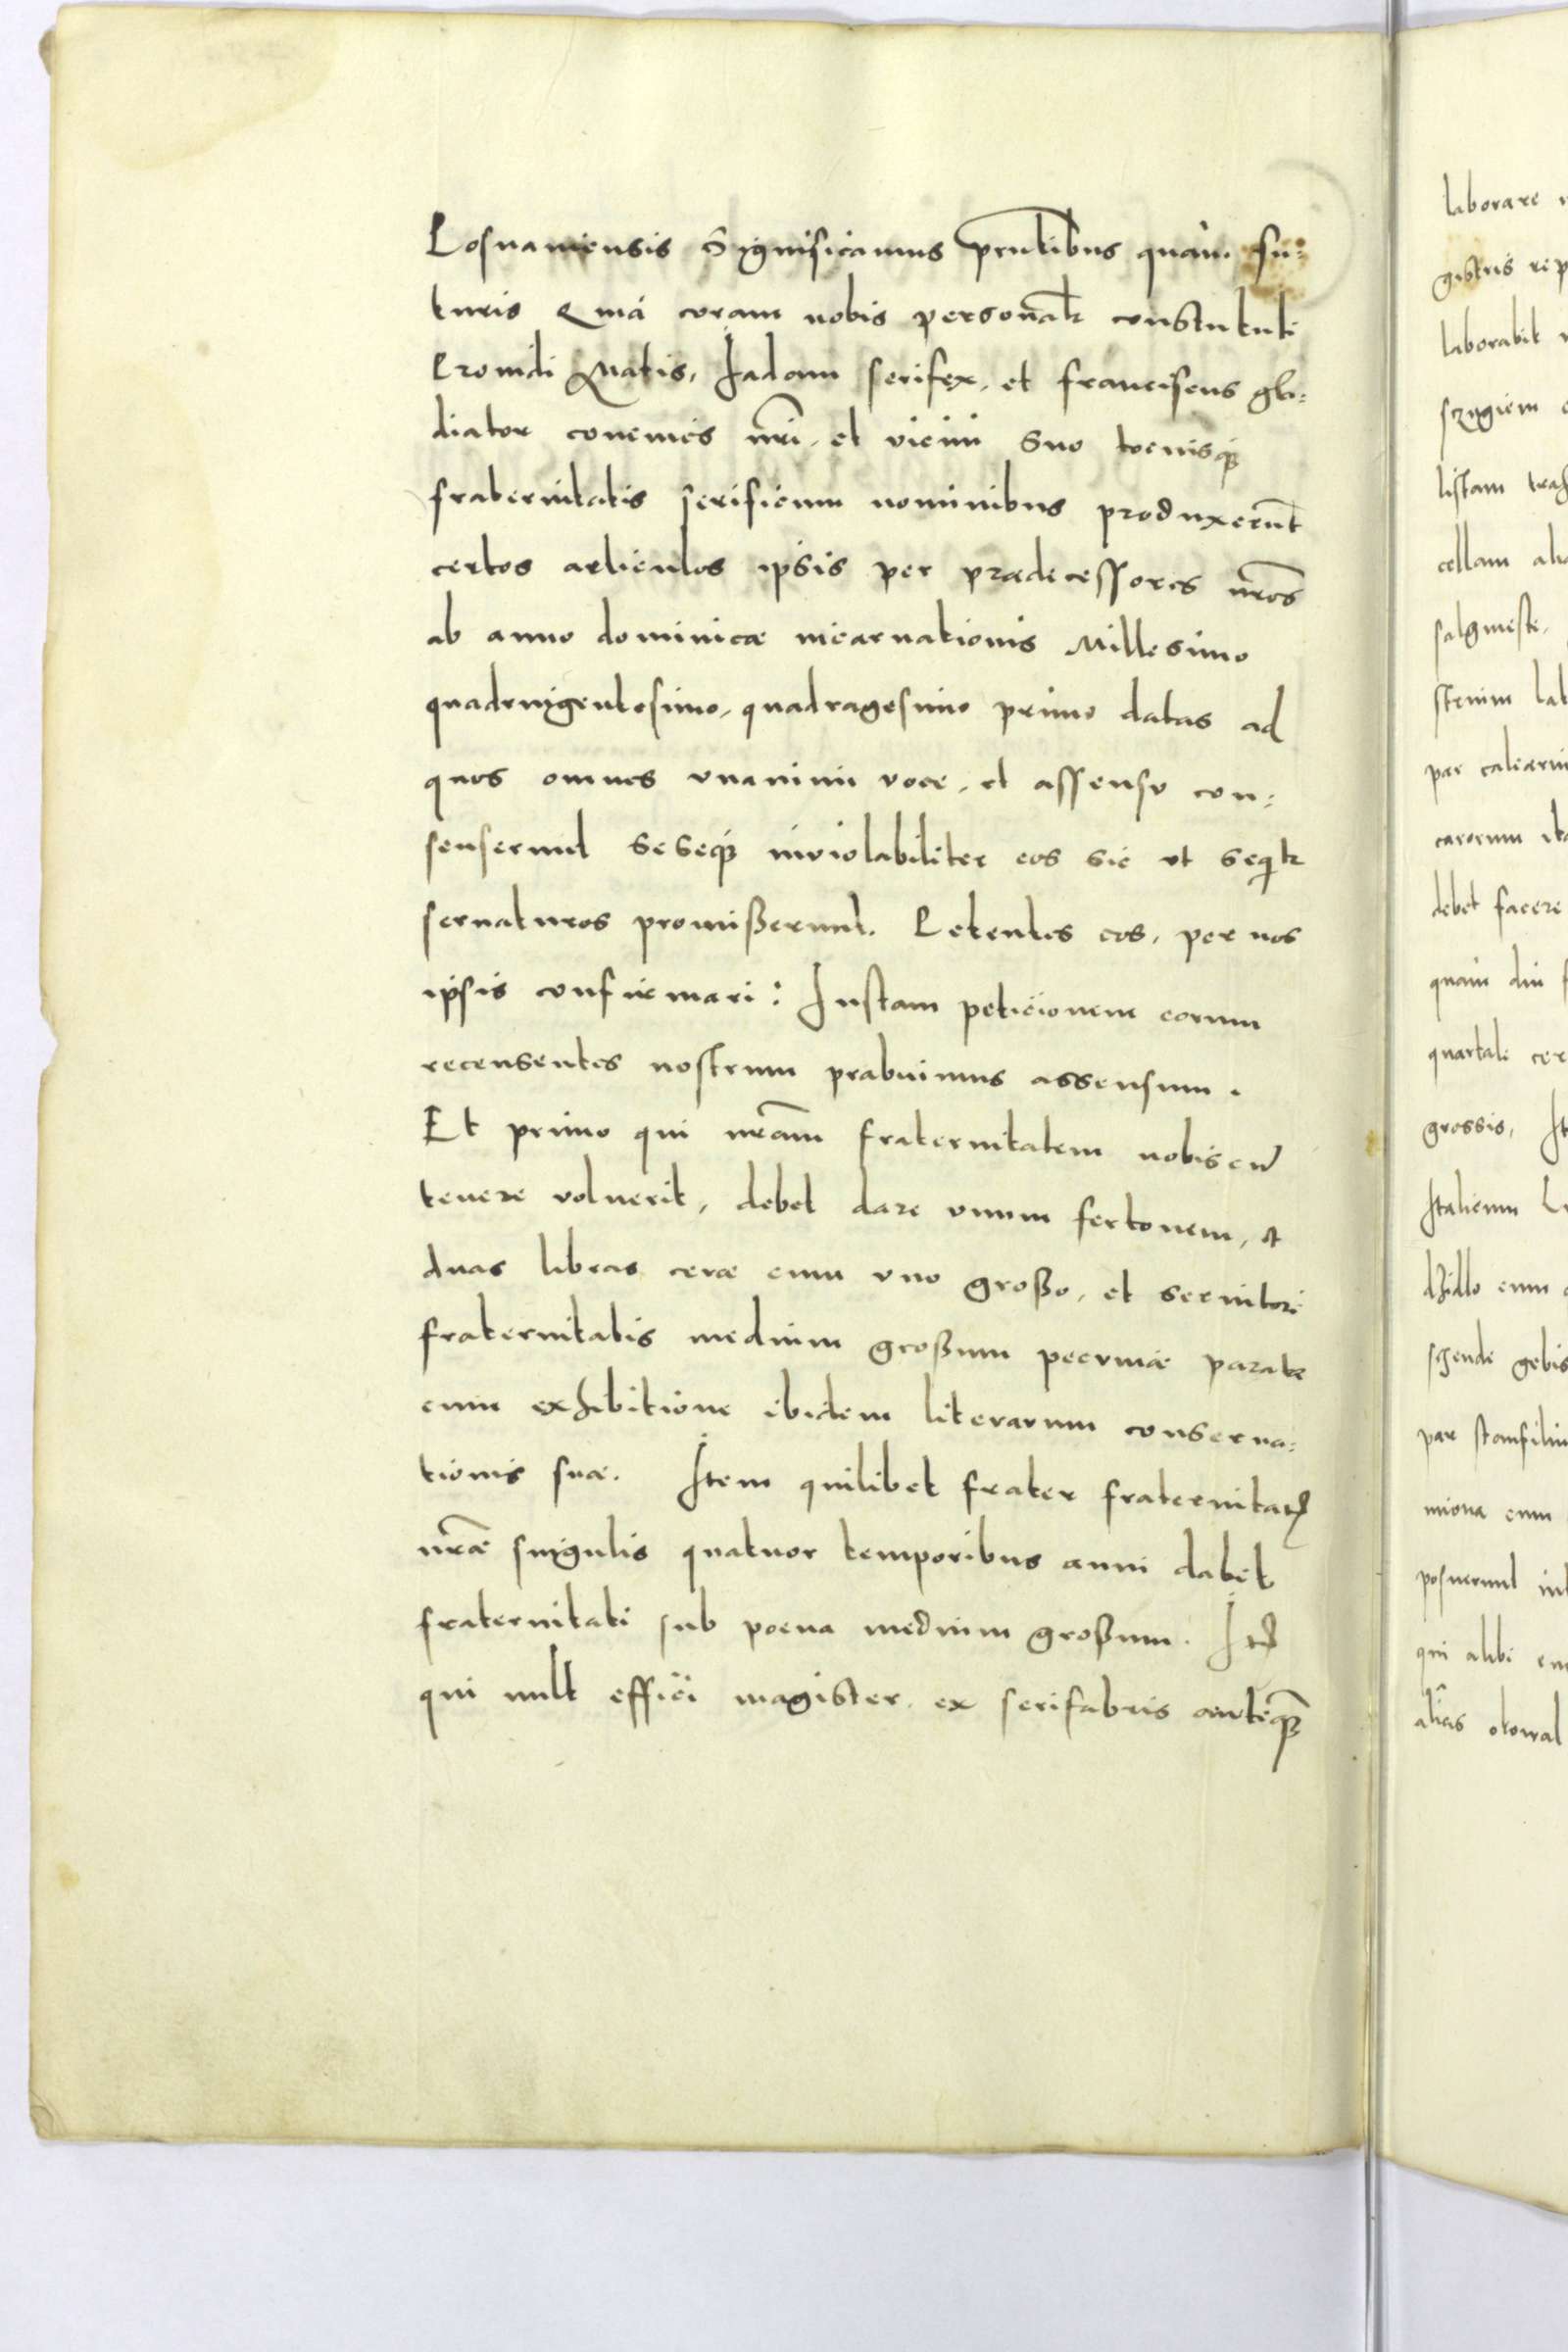 Posnaniensis Significamus pr̃ntibus quàm fu=
turis Quià coram nobis personalr̃ constituti
Prouidi Matis, Jadam serifex, et franciscus gla=
diator conciues nr̃i, et vicini suo tociusq́
fraternitatis serificum nominibus produxerunt̃
certos articulos ipsis per prædecessores nr̃os
ab anno dominicæ incarnationis Millesimo
quadringentesimo, quadragesimo primo datas ad
quos omnes vnanimi voce, et assensu con=
senserunt seseq́ inviolabiliter eos sic vt seqĩtr
seruaturos promißerunt. Petentes eos, per nos
ipsis confirmari: Justam peticionem eorum
recensentes nostrum præbuimus assensum.
Et primo qui nr̃am fraternitatem nobiscũ
tenere voluerit, debet dare vnum fertonem, et
duas libras ceræ cum vno großo, et seruitori
fraternitatis medium großum pecuniæ paratæ
cum exhibitione ibidem literarum conserua=
tionis suæ. Item quilibet frater fraternitatis
nr̃æ singulis quatuor temporibus anni dabit
fraternitati sub poena medium großum. Itẽ
qui vult effici magister, ex serifabris anteq̃
laborare
gistris
laborabit
listam
cellam
par
debet facere
quàm diu
quartale
grossis,
Italicum
cum
par
cum
posuerunt
qui alibi